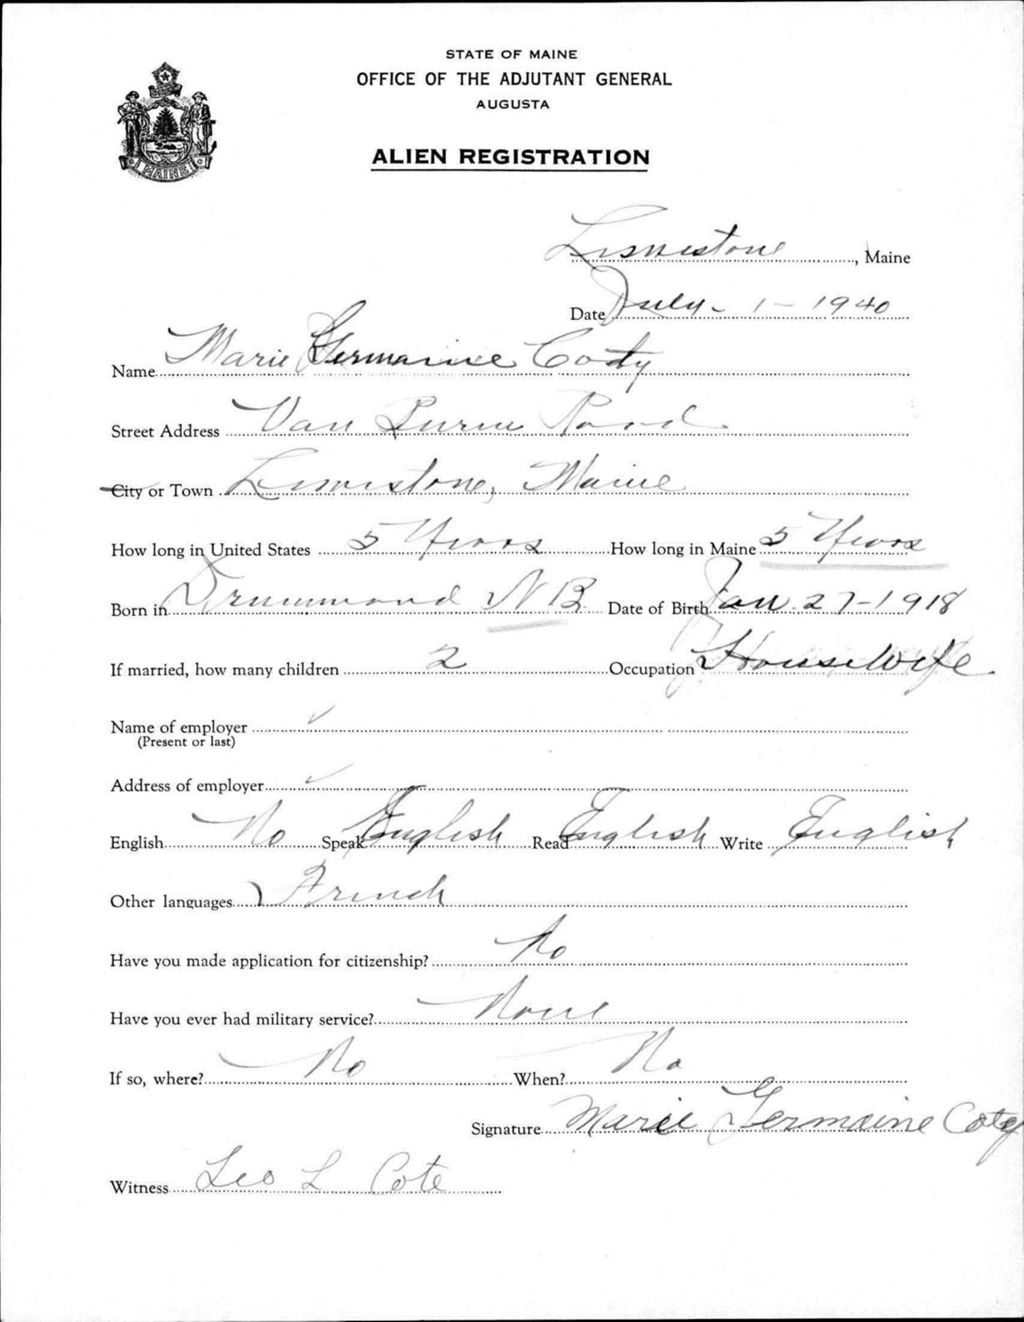 STATE OF MAINE
OFFICE OF THE ADJUTANT GENERAL
AUGUSTA
MAINE
ALIEN REGISTRATION
Limestone, Maine
Date July - 1 - 1940
Name Marie Germaine Coty
Street Address Van Buren Road
City or Town Limestone, Maine
How long in United States 5 Years How long in Maine 5 Years
Born in Drummond N B Date of Birth Jan 27-1918
If married, how many children 2 Occupation Housewife
Name of employer
(Present or last)
Address of employer
English No Speak English Read English Write English
Other languages French
Have you made application for citizenship? No
Have you ever had military service? None
If so, where? No When? No
Signature Marie Germaine Coty
Witness Leo L Cote